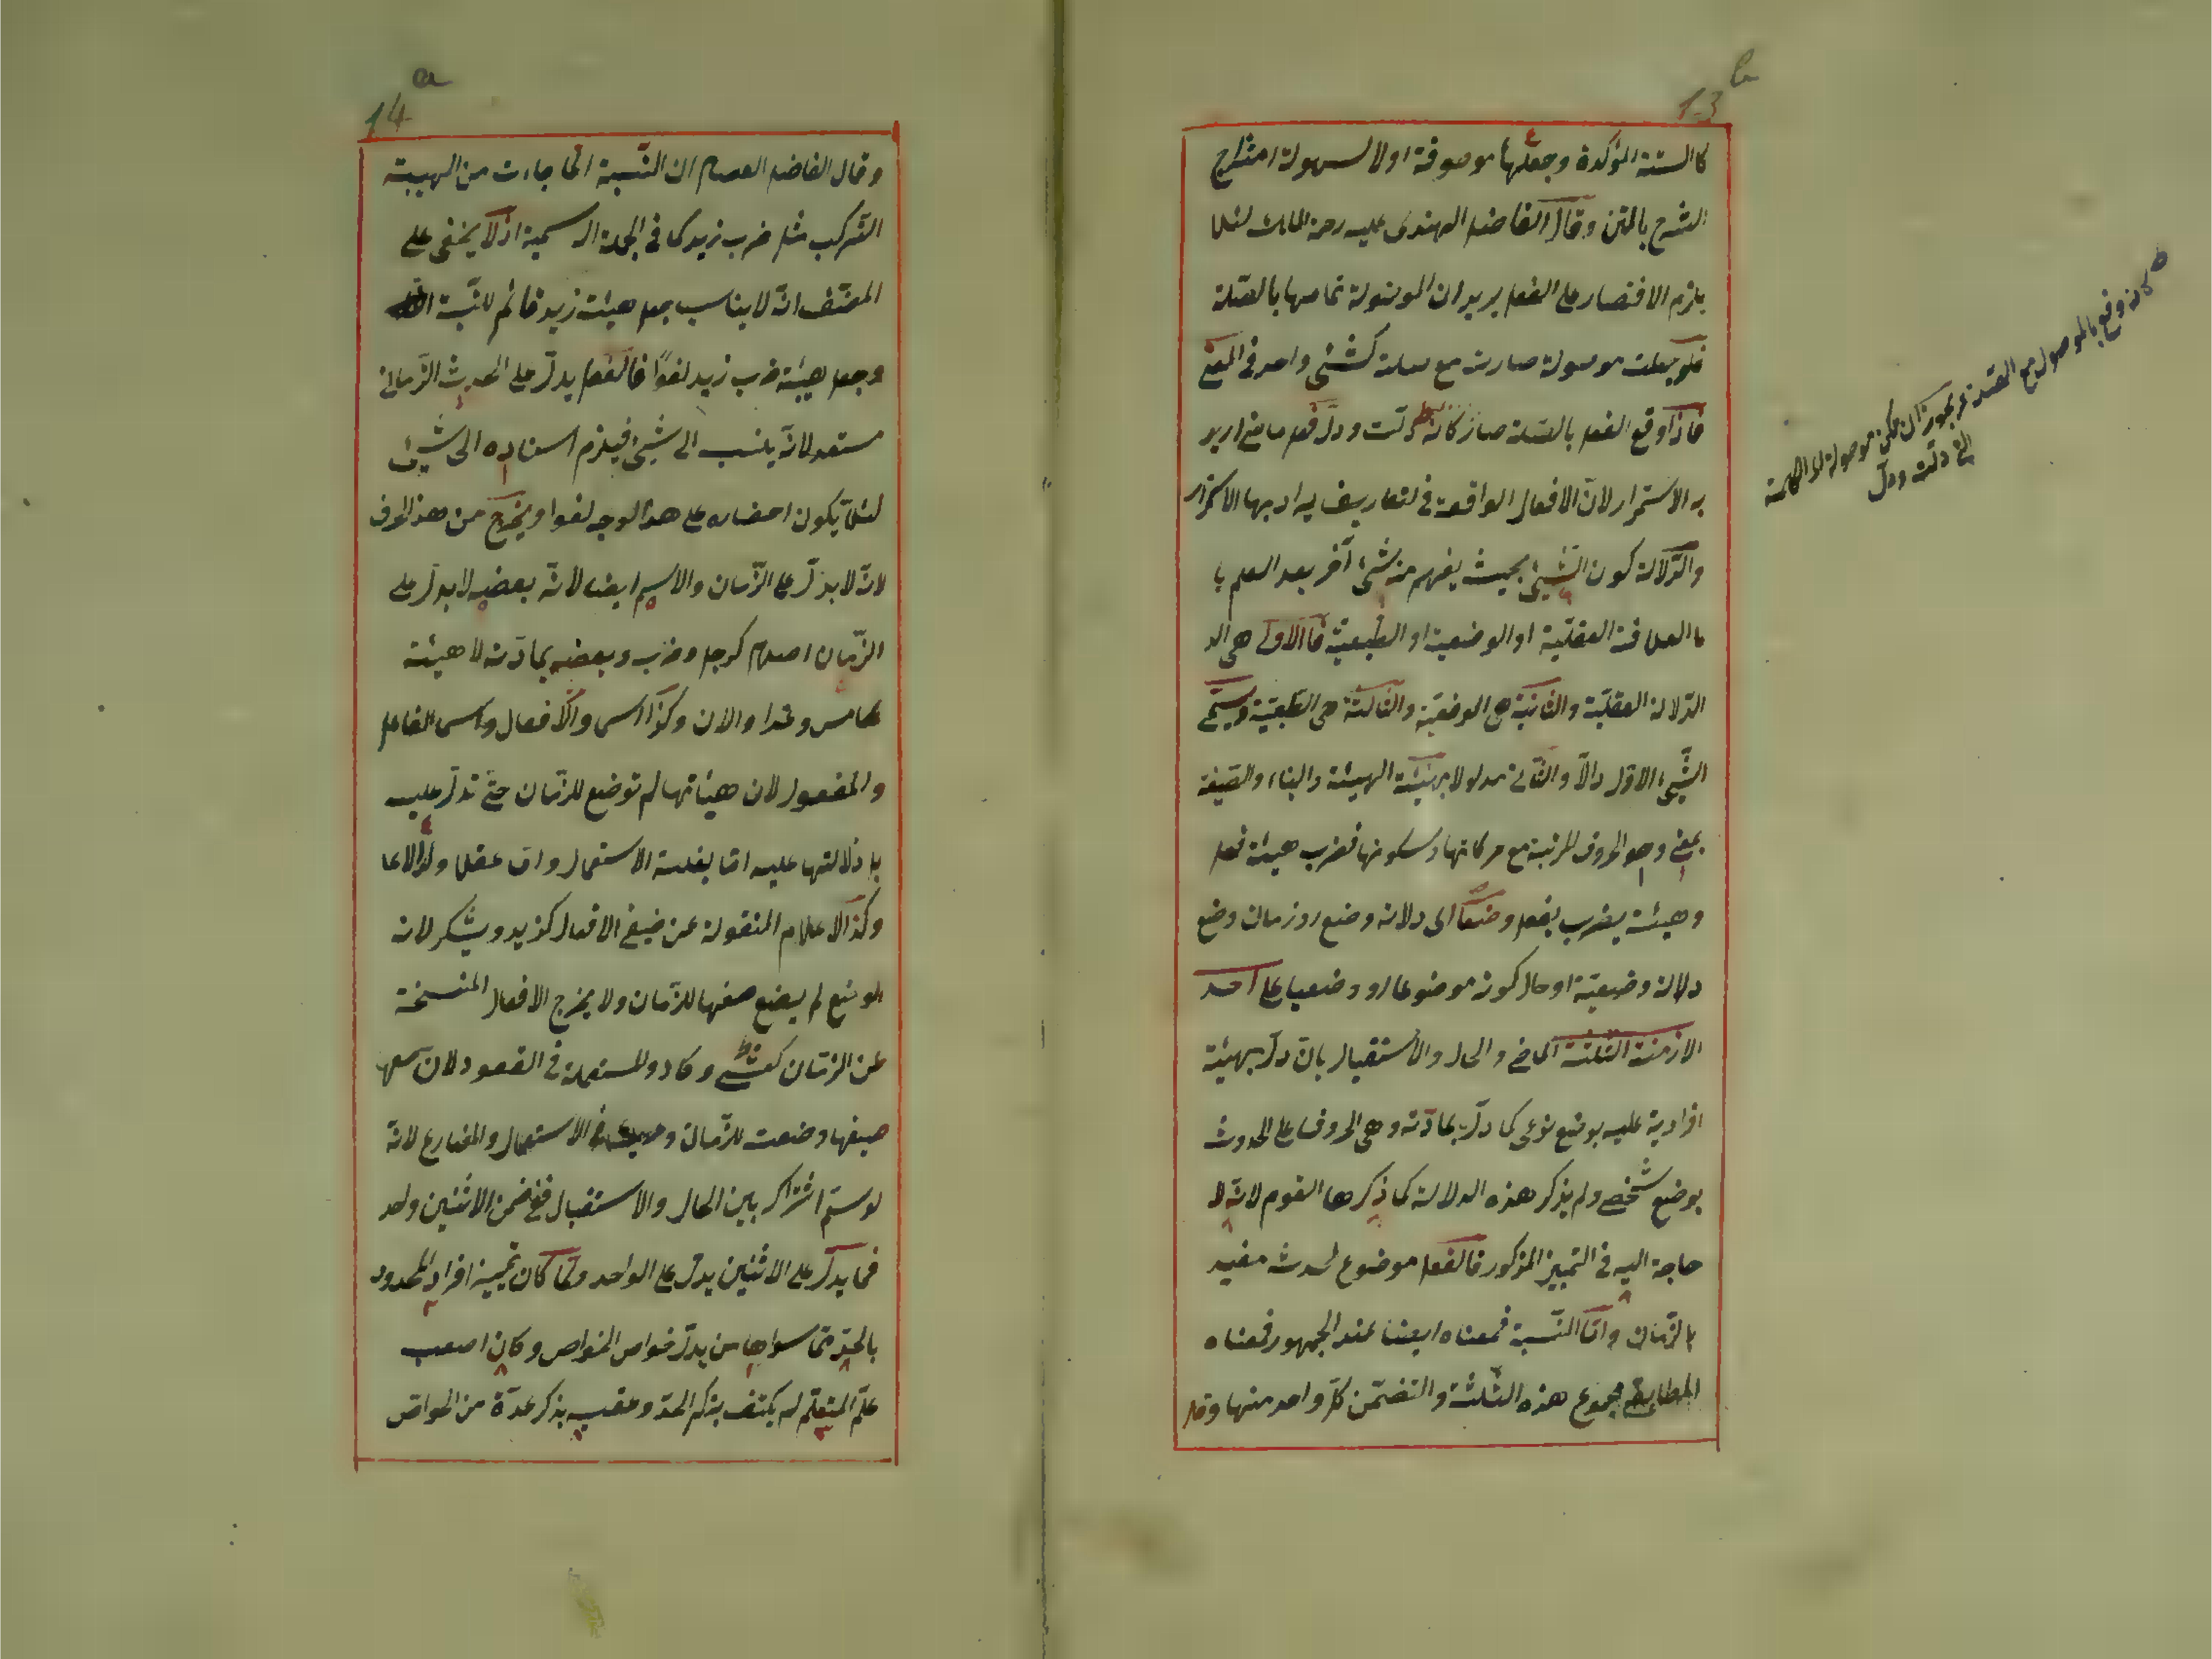 13 b
كالستة المؤكدة وجعلها موصوفة اولا لسهولة امتزاج
الشرح بالمتن وقال الفاضل الهندى عليه رحمة المالك لئلا
يلزم الاقتصار على الفعل يريد ان الموصولة تمامها بالصلة
فلو جعلت موصولة صارت مع صلته كشئ واحد فى المعنى
فاذا وقع الفعل بالصلة صار كانه دلت ودل فعل ماض اريد
به الاستمرار لان الافعال الواقعة فى التعاريف يراد بها الاستمرار
والدلالة كون الشيئ بحيث يفهم منه شئ آخر بعد العلم با
ما العلاقة العقلية او الوضعية او الطبعية فالاولى هى الد
الدلالة العقلية والثانية هى الوضعية والثالثة هى الطبعية ويسمى
الشيئ الاول دالا والثانى مدلولا بهيئته الهيئة والبناء والصيغة
بمعنى وهو الحروف المرتبة مع حركاتها وسكونها فضرب هيئة فعل
وهيئة يضرب يفعل وضعا اى دلالة وضع او زمان وضع
دلالة وضعية او حال كونه موضوعا او وضعيا على احد
الازمنة الثلثة الماضى والحال والاستقبال بان دل بهيئة
افرادية عليه بوضع نوعى كما دل بمادته وهى الحروف على الحدث
بوضع شخصى ولم يذكر هذه الدلالة كما ذكرها القوم لانه لا
حاجة اليه فى التمييز المذكور فالفعل موضوع لحدث مفيد
بالزمان واما النسبة فمعناه ايضا عند الجمهور فمعناه
المطابقى مجموع هذه الثلثة والتضمن كل واحد منها وقا
كانه وقع بالموصول مع الصلة يجوز ان يكون موصولة اى الكلمة
التى دلت ودل
14 a
وقال الفاضل العصام ان النسبة انما جاءت من الهيئة
التركيب مثل ضرب زيد كما فى الجملة الاسمية اذ لا يخفى على
المصنف انه لا يناسب جعل هيئة زيد قائم للنسبة
وجعل هيئة ضرب زيد لغوا فالفعل يدل على الحدث الزمانى
مستعد لانه ينسب الى شيئ فيلزم اسناده الى شيئ
لئلا يكون احضاره على هذا الوجه لغوا ويخرج من هذا الحرف
لانه لا يدل على الزمان والاسم ايضا لانه بعضه لا يدل على
الزمان اصلا كرجل وضرب وبعضه بمادته لا هيئة
كامس وغدا والآن وكذا اسماء الافعال واسم الفاعل
والمفعول لان هيئاتها لم توضع للزمان حتى تدل عليه
بل دلالتها عليه اما بغلبة الاستعمال واما عقلا
وكذا الاعلام المنقولة عن صيغ الافعال كيزيد ويشكر لانه
لم يضع للزمان ولا يخرج الافعال المنسخة
عن الزمان كعسى وكاد والمستعملة فى القعود لان
صيغها وضعت للزمان الاستعمال والمضارع لانه
لو سلم اشتراكه بين الحال والاستقبال ففى ضمن الاثنين واحد
فما يدل على الاثنين يدل على الواحد ولما كان تمييز افراد المحدود
بالحد مما سواها من يدل خواص الخواص وكان اصعب
على المتعلم لم يكتف بذكر الحد وعقبه بذكر عدة من الخواص